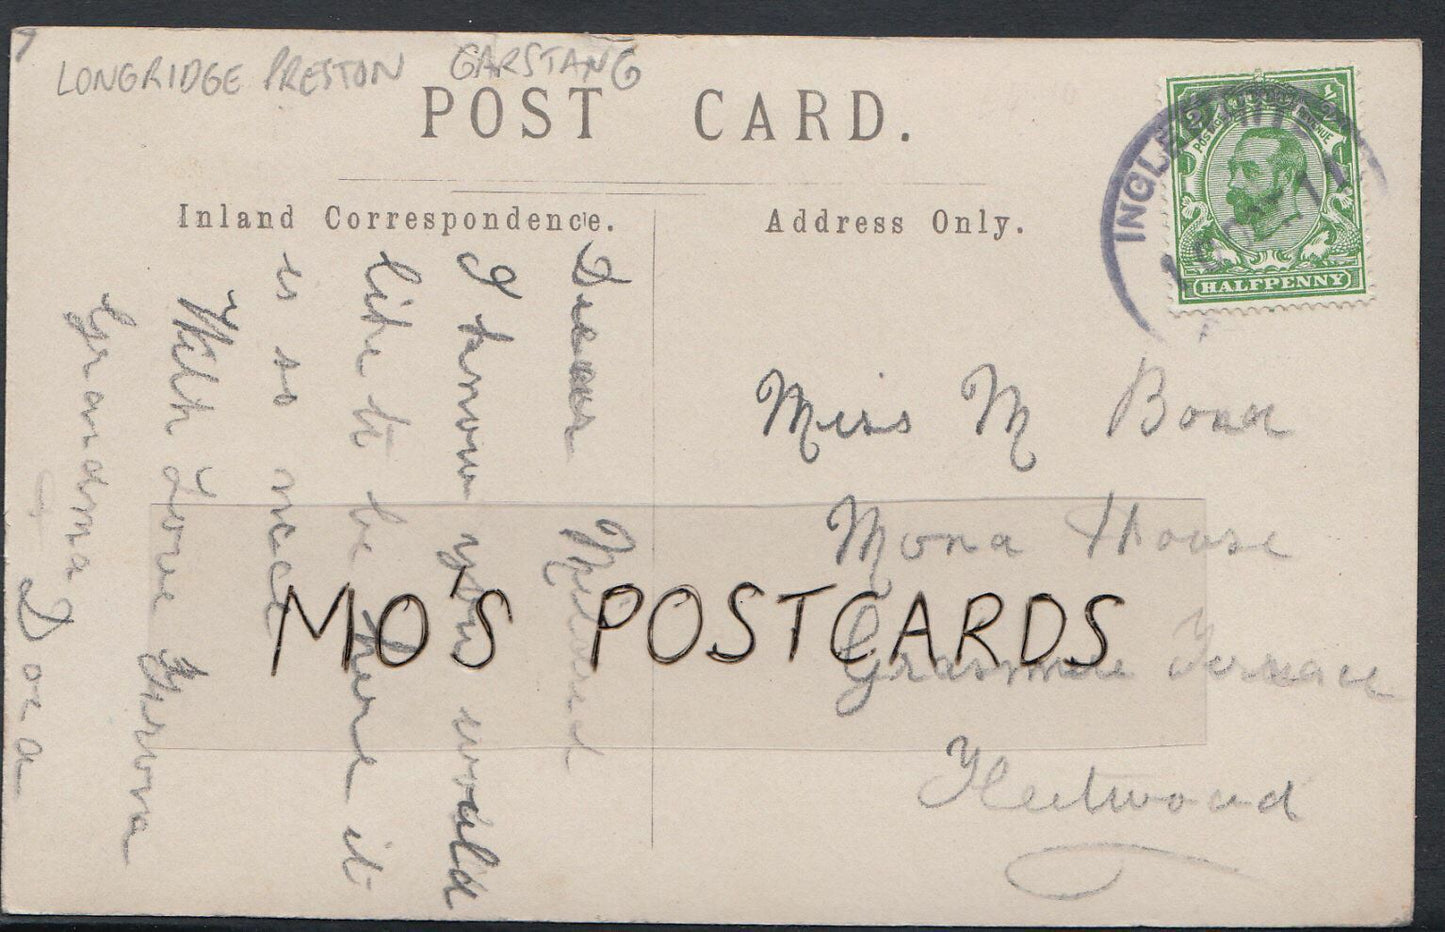 LONGRIDGE PRESTON GARSTANG
POST CARD.
Inland Correspondence.
Address Only.
HALFPENNY
Dear Mildred
I know you would
like to be here it
is so nice
With Love From
Grandma
Miss M Bond
Mona House
Grasmere Terrace
Fleetwood
MO'S POSTCARDS